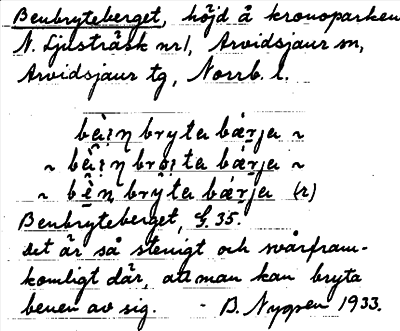 Benbryteberget, höjd å kronoparken
N. Ljusträsk nr 1, Arvidsjaur sn,
Arvidsjaur tg, Norrb. l.
bryta bærja ~
~ bærja ~
~ bærja (r)
Benbryteberget, G. 35.
det är så stenigt och svårfram-
komligt där, att man kan bryta
benen av sig. - B. 1933.